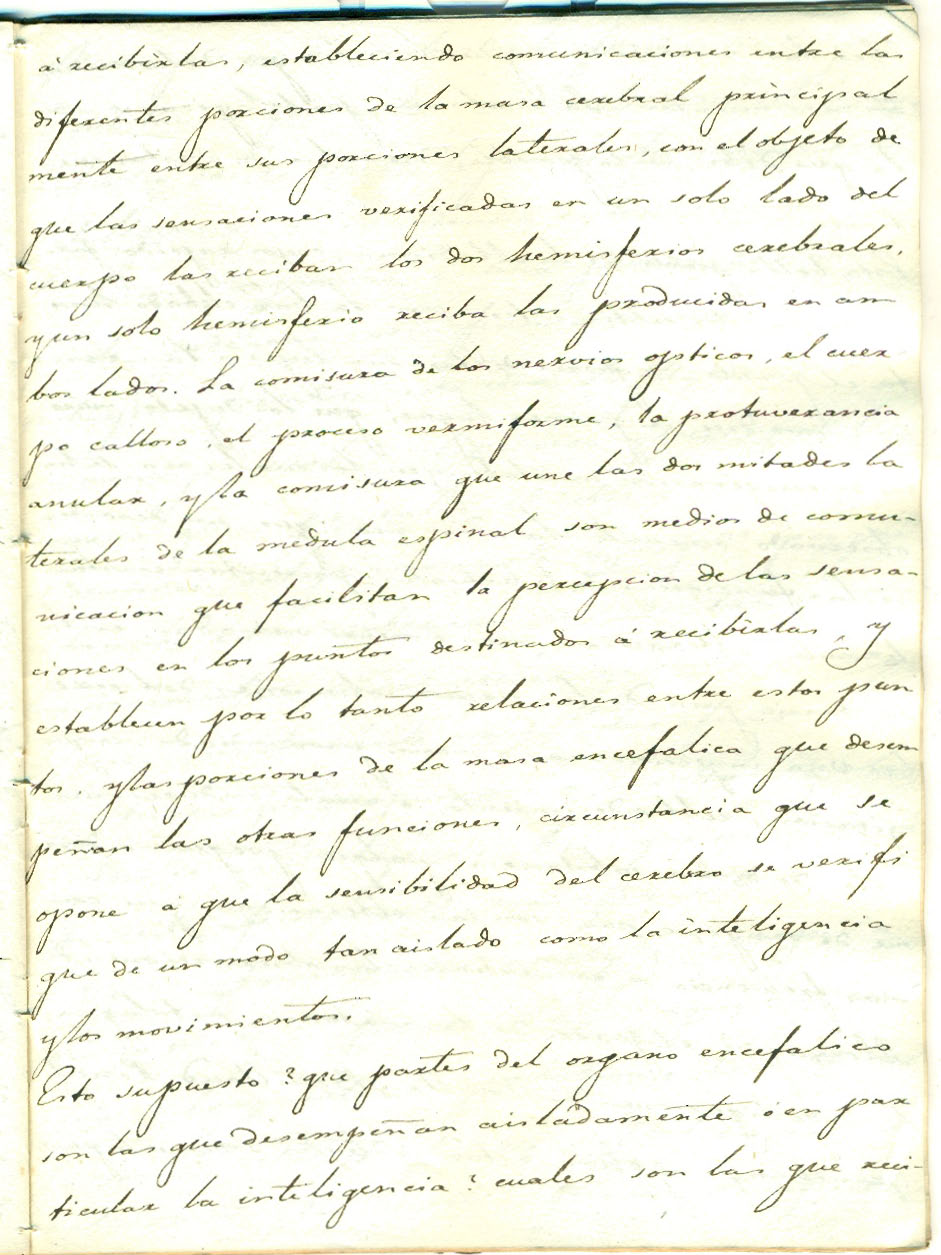 á recibirlas, estableciendo comunicaciones entre las
diferentes porciones de la masa cerebral principal
mente entre sus porciones laterales, con el objeto de
que las sensaciones verificadas en un solo lado del
cuerpo las reciban los dos hemisferios cerebrales,
y un solo hemisferio reciba las producidas en am
bos lados. La comisura de los nervios opticos, el cuer
po calloso, el proceso vermiforme, la protuverancia
anular, y la comisura que une las dos mitades la
terales de la medula espinal son medios de comu-
nicacion que facilitan la percepcion de las sensa-
ciones en los puntos destinados á recibirlas, y
establecen por lo tanto relaciones entre estos pun
tos, y las porciones de la masa encefalica que desem
peñan las otras funciones, circunstancia que se
opone á que la sensibilidad del cerebro se verifi
que de un modo tan aislado como la inteligencia
y los movimientos.
Esto supuesto ? que partes del organo encefalico
son las que desempeñan aisladamente ó en par
ticular la inteligencia ? cuales son las que reci-